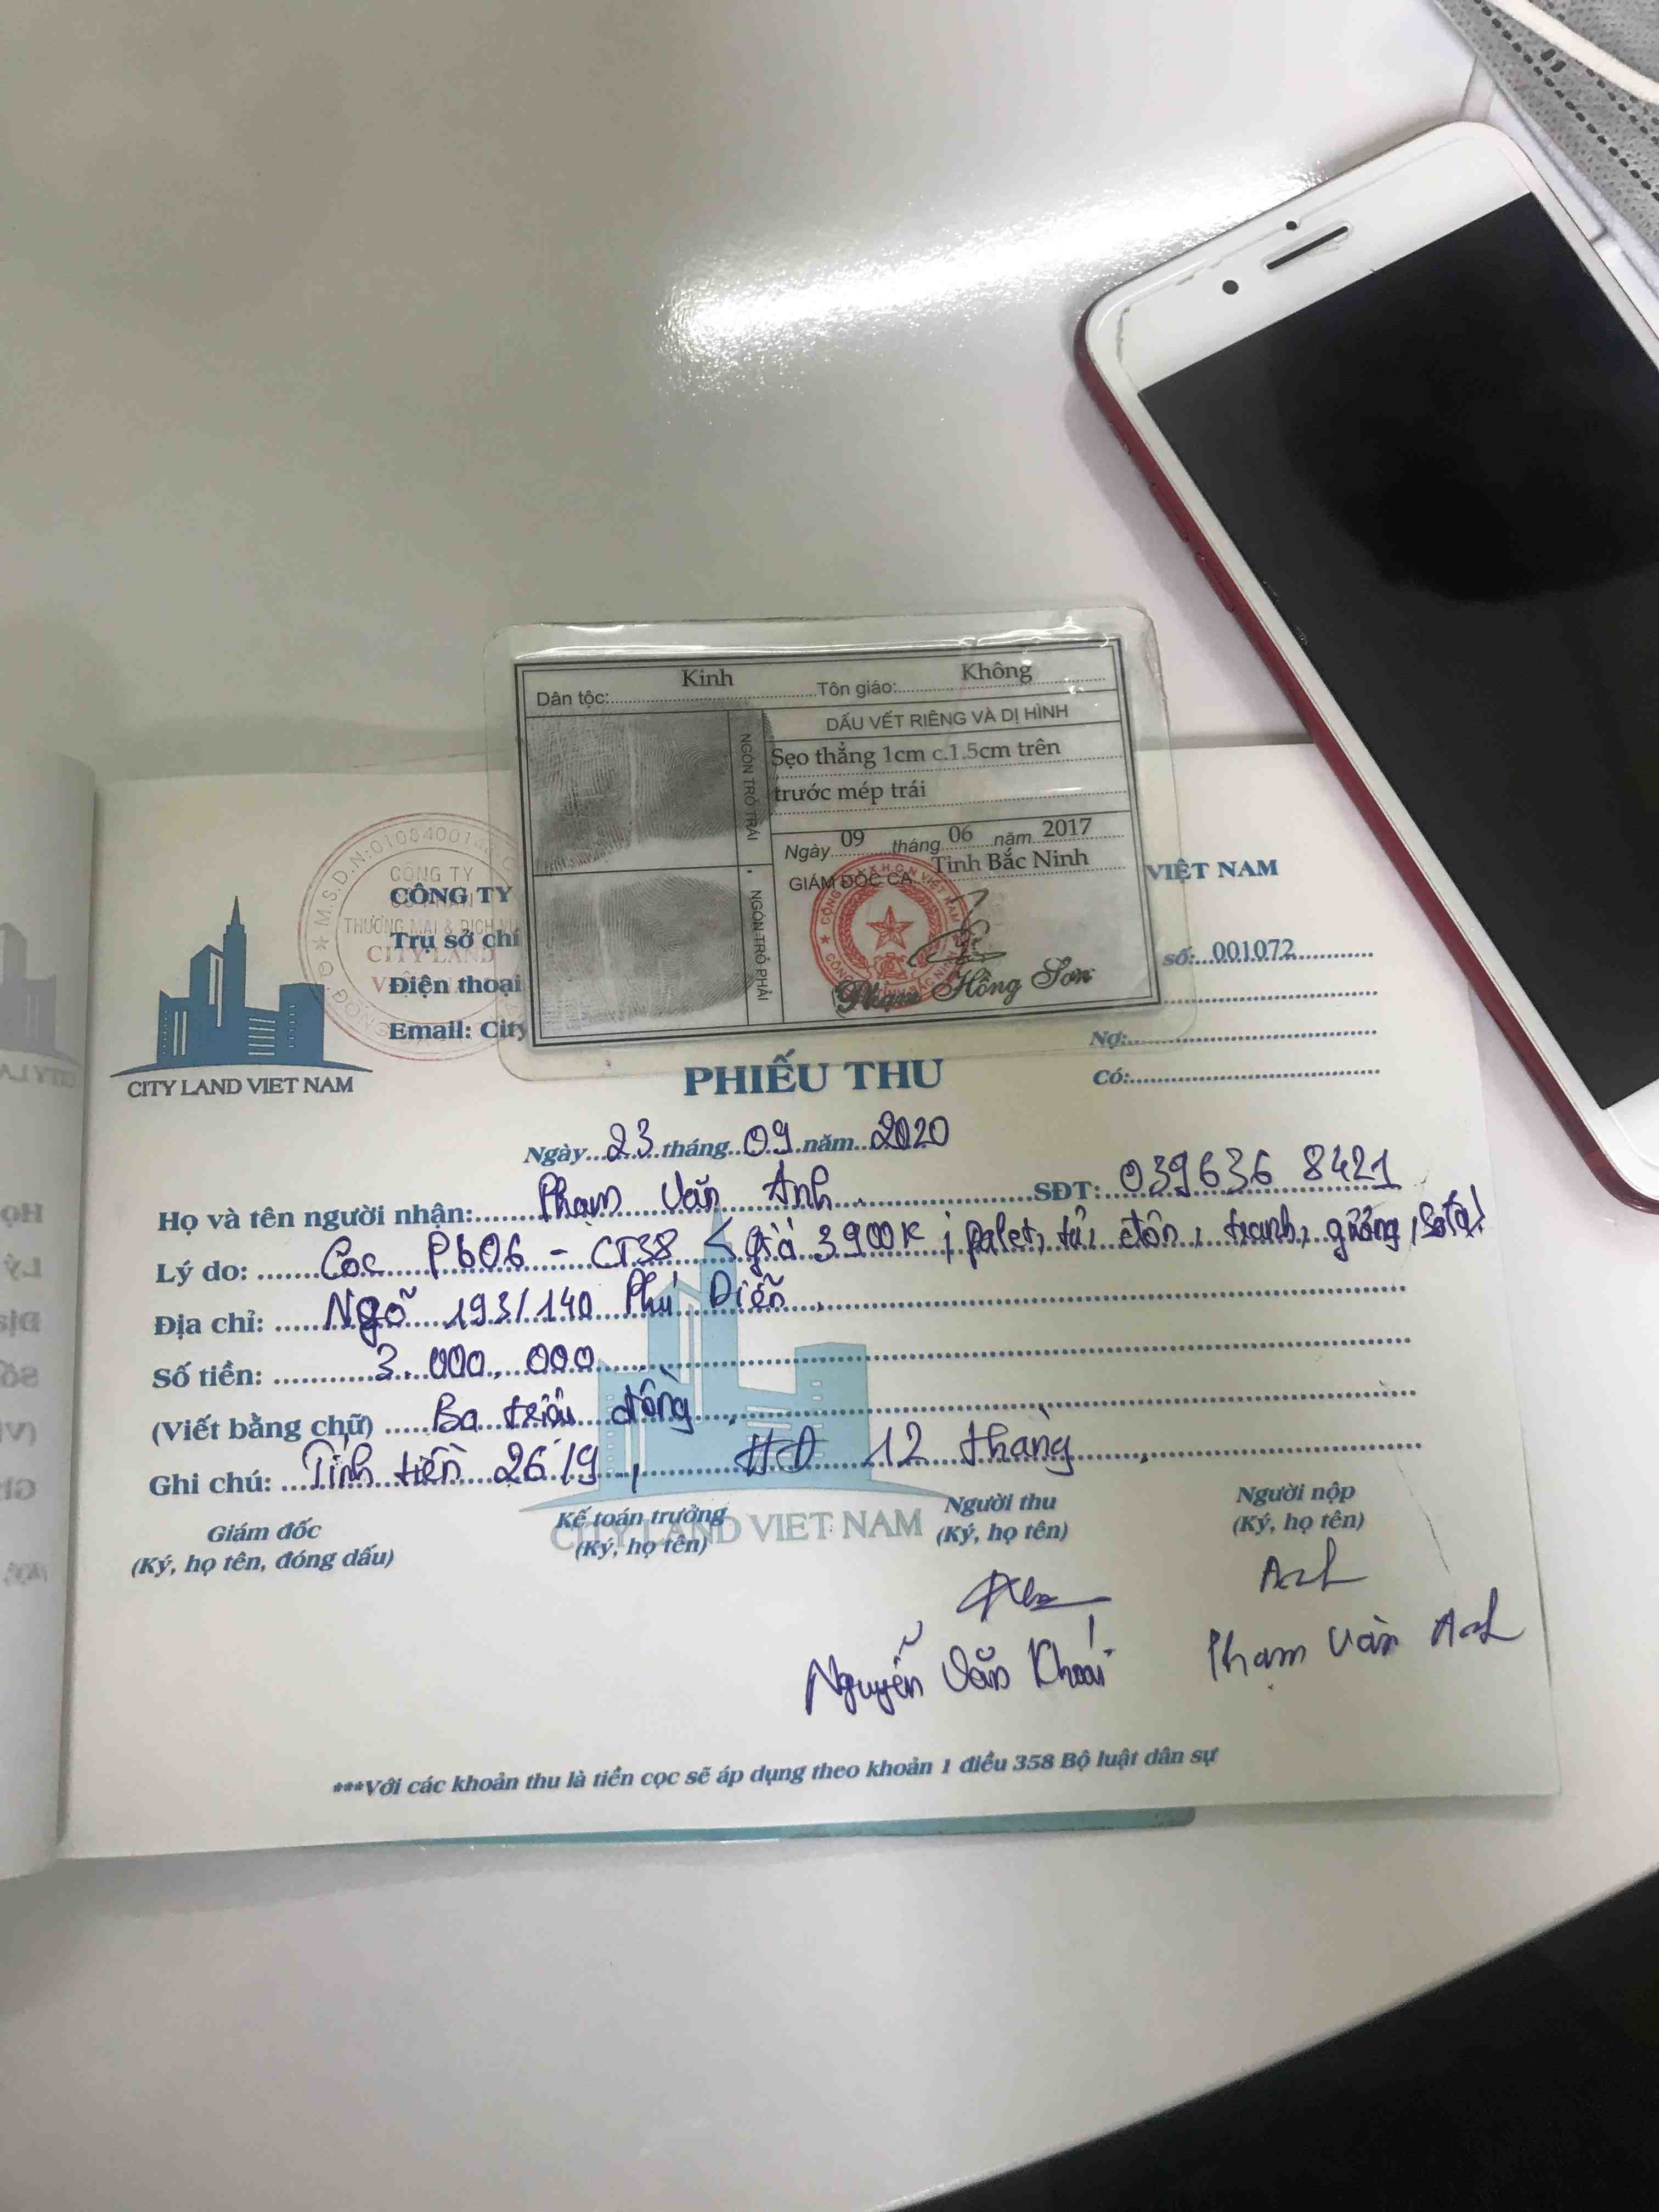 Dân tộc: Kinh Tôn giáo: Không
DẤU VẾT RIÊNG VÀ DỊ HÌNH
Sẹo thẳng 1cm c.1.5cm trên
trước mép trái
NGÓN TRỎ TRÁI
Ngày 09 tháng 06 năm 2017
Tỉnh Bắc Ninh
GIÁM ĐỐC CA
NGÓN TRỎ PHẢI
Phạm Hồng Sơn
M.S.D.N:01084001
CÔNG TY
THƯƠNG MẠI & DỊCH VỤ
CITY LAND
CÔNG TY
VIỆT NAM
Trụ sở chí
số: 001072
Điện thoại
Email: City
Nợ:
Có:
CITY LAND VIET NAM
PHIẾU THU
Ngày 23 tháng 09 năm 2020
Họ và tên người nhận: Phạm Văn Anh SĐT: 039636 8421
Lý do: Cọc P606 - CT38 < giá 3900K ; palet, tủ, đôn, tranh, gương, sofa!
Địa chỉ: Ngõ 193/140 Phú Diễn
Số tiền: 3.000.000
(Viết bằng chữ) Ba triệu đồng
Ghi chú: Tính tiền 26/9, HĐ 12 tháng
CITY LAND VIET NAM
Giám đốc
(Ký, họ tên, đóng dấu)
Kế toán trưởng
(Ký, họ tên)
Người thu
(Ký, họ tên)
Người nộp
(Ký, họ tên)
Anh
Nguyễn Văn Khoái
Phạm Văn Anh
***Với các khoản thu là tiền cọc sẽ áp dụng theo khoản 1 điều 358 Bộ luật dân sự